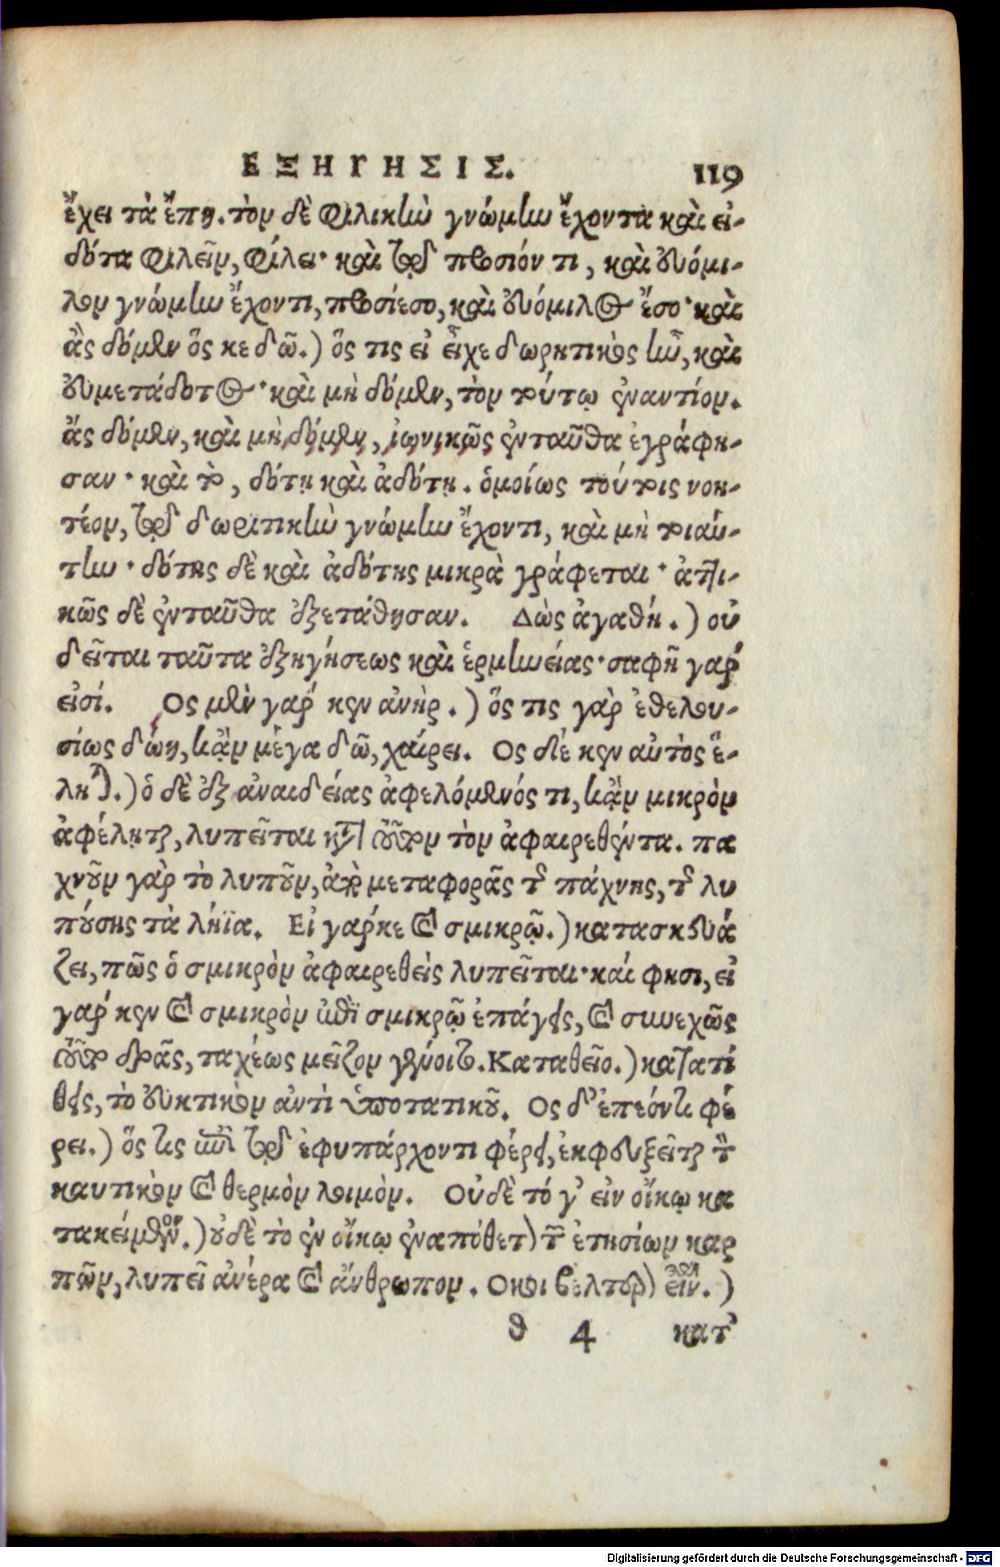 ΕΞΗΓΗΣΙΣ. 119
ἔχει τὰ ἔπη. τὸν δὲ φιλικὴν γνώμην ἔχοντα καὶ εἰ-
δότα φιλεῖν, φίλει· καὶ τῷ προσιόντι, καὶ εὐόμι-
λον γνώμην ἔχοντι, προσίεσο, καὶ εὐόμιλος ἔσο· καὶ
ἂς δόμεν ὅς κε δῶ.) ὅς τις εἰ εἶχε δωρητικὸς ἦν, καὶ
εὐμετάδοτος· καὶ μὴ δόμεν, τὸν τούτῳ ἐναντίον.
ἂς δόμεν, καὶ μὴ δόμεν, ἰωνικῶς ἐνταῦθα ἐγράφη-
σαν· καὶ τὸ, δότῃ καὶ ἀδότῃ. ὁμοίως τούτοις νοη-
τέον, τῷ δωριτικὴν γνώμην ἔχοντι, καὶ μὴ τοιαύ-
την· δότης δὲ καὶ ἀδότης μικρὰ γράφεται· ἀττι-
κῶς δὲ ἐνταῦθα ἐξετάθησαν. Δὼς ἀγαθή.) οὐ
δεῖται ταῦτα ἐξηγήσεως καὶ ἑρμηνείας· σαφῆ γάρ
εἰσί. Ος μὲν γάρ κεν ἀνὴρ.) ὅς τις γὰρ ἐθελου-
σίως δώῃ, κἂν μέγα δῶ, χαίρει. Ος δέ κεν αὐτὸς ἕ-
ληται.) ὁ δὲ ἐξ ἀναιδείας ἀφελόμενός τι, κἂν μικρὸν
ἀφέληται, λυπεῖται κατ' ἐκεῖνον τὸν ἀφαιρεθέντα. πα
χνοῦν γὰρ τὸ λυποῦν, ἀπὸ μεταφορᾶς τῆς πάχνης, τῆς λυ
πούσης τὰ λήϊα. Εἰ γάρ κε καὶ σμικρῷ.) κατασκευά
ζει, πῶς ὁ σμικρὸν ἀφαιρεθεὶς λυπεῖται· καί φησι, εἰ
γάρ κεν καὶ σμικρὸν ἐπὶ σμικρῷ ἐπάγεις, καὶ συνεχῶς
τοῦτο δρᾶς, ταχέως μεῖζον γένοιτο. Καταθεῖο.) κατατί
θεις, τὸ εὐκτικὸν ἀντὶ ὑποτατικοῦ. Ος δ' ἐπεόντι φέ
ρει.) ὅς τις ἐπὶ τῷ ἐφυπάρχοντι φέρει, ἐκφευξεῖται τὸν
καυτικὸν καὶ θερμὸν λοιμὸν. Οὐδὲ τό γ' εἰν οἴκῳ κα
τακείμενον.) οὐδὲ τὸ ἐν οἴκῳ ἐναπόθεται τῶν ἐτησίων καρ
πῶν, λυπεῖ ἀνέρα καὶ ἄνθρωπον. Οἴκοι βέλτερον εἶναι.)
θ 4 κατ'
Digitalisierung gefördert durch die Deutsche Forschungsgemeinschaft - DFG